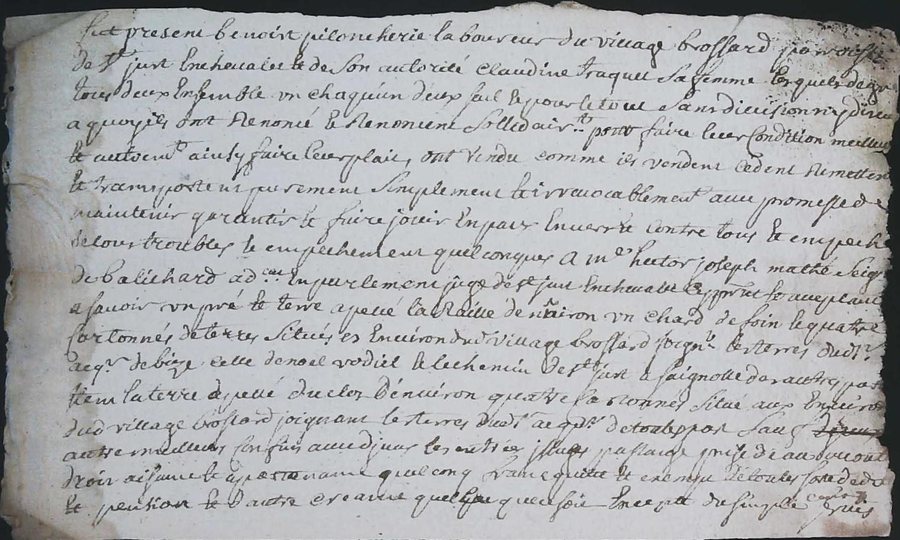 fut present benoist piloncherie laboureur du village brossard paroisse
de st just Enchevalet & de Son autorité Claudine traquet Sa femme lesquels de gr
tous deux Ensemble un chaqu'un deux seul & pour le tout Sans division ny discu
a quoy ils ont Renoncé & Renoncent Sollidairt pour faire leur Condition meilleu
& autremt ainsy faire leur plait, ont vendu comme ils vendent Cedent Remetten
& transportent purement Simplement & irrevocablement avec promesse de
maintenir garantir & faire jouir En paix Envers & contre tous & empech
de tous troubles & empechement quelconques A me hector joseph mathé Seigr
de balichard adcat En parlement juge de st just Enchevallet present &
a savoir un pré & terre apellé la Raille denviron un chard de foin & quatre
cartonnés de terres Situés Es Environ du village brossard joigt les terres dudt
acqr de bize celle de noel vodiel & le chemin de st just a Saignolle dautres par
Item la terre apellé du clos Denviron quatre cartonnés Situé aux Environ
dud village brossard joignant les terres dudt acqr de toutes par Sauf
autre meilleurs Confins avec djeux les entrée issues passage prise deau
droit aisance & apartenance quelconq franc quitte & exempt de toutes
& pention & dautre creance quelque que soit Excepté du simple cens